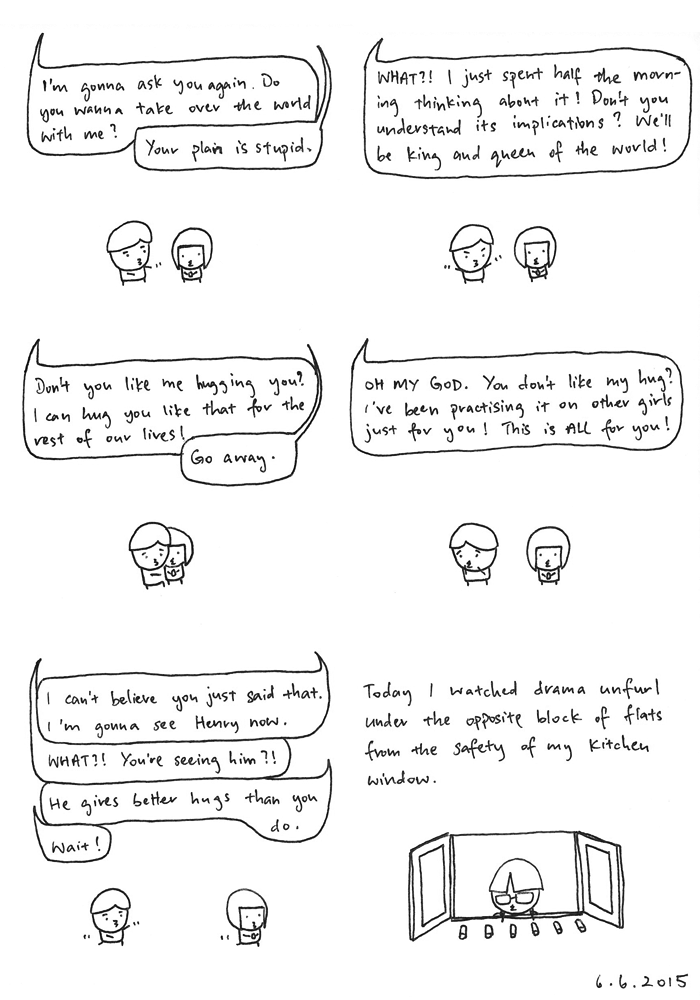 I'm gonna ask you again. Do
you wanna take over the world
with me?
Your plan is stupid.
WHAT?! I just spent half the morn-
ing thinking about it! Don't you
understand its implications? We'll
be king and queen of the world!
Don't you like me hugging you?
I can hug you like that for the
rest of our lives!
Go away.
OH MY GOD. You don't like my hug?
I've been practising it on other girls
just for you! This is ALL for you!
I can't believe you just said that.
I'm gonna see Henry now.
WHAT?! You're seeing him?!
He gives better hugs than you
do.
Wait!
Today I watched drama unfurl
under the opposite block of flats
from the safety of my kitchen
window.
6.6.2015